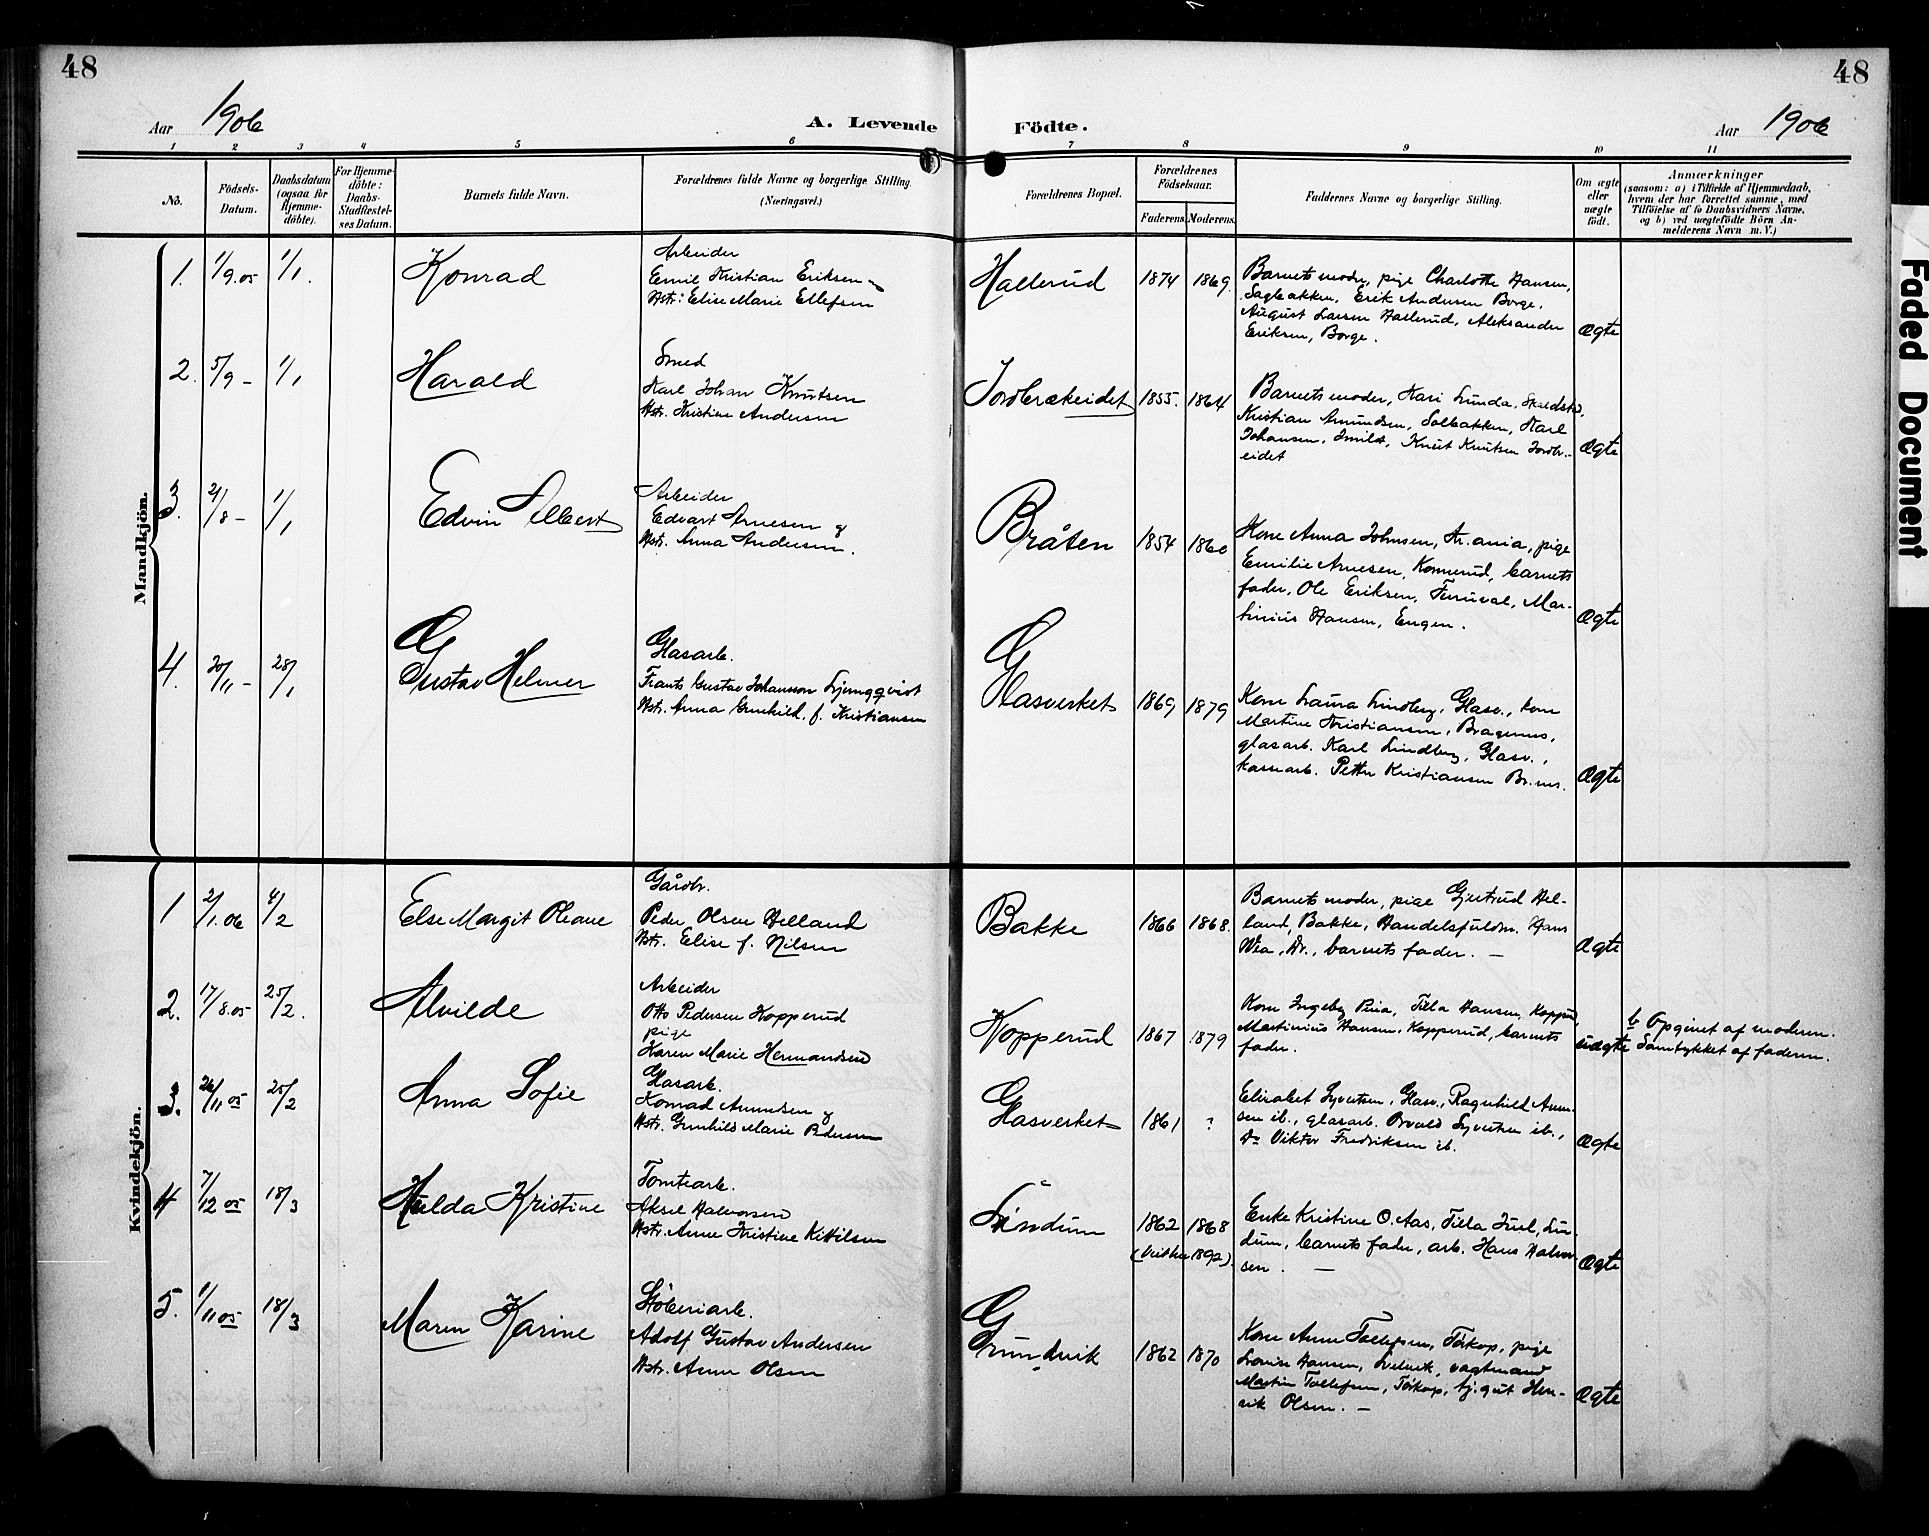 48
48
Aar 1906
A. Levende Födte.
Aar 1906
1 2 3 4 5 6 7 8 9 10 11
No.
Födsels-Datum.
Daabsdatum (ogsaa för Hjemme-döbte).
For Hjemme-döbte: Daabs-Stadfæstel-ses Datum.
Barnets fulde Navn.
Forældrenes fulde Navne og borgerlige Stilling.
(Næringsvei.)
Forældrenes Bopæl.
Forældrenes Födselsaar.
Faderens Moderens.
Faddernes Navne og borgerlige Stilling.
Om ægte eller uægte födt.
Anmærkninger
(saasom: a) i Tilfælde af Hjemmedaab,
hvem der har forrettet samme, med
Tilföielse af to Daabsvidners Navne,
og b) ved uægtefödte Börn An-
melderens Navn m. V.)
Mandkjön.
1. 1/9.05 1/1. Konrad
Arbeider
Emil Kristian Eriksen
Hstr: Elise Marie Ellefsen
Hallerud 1874 1869.
Barnets moder, pige Charlotte Hansen,
Sagbakken, Erik Andersen Borge,
August Larsen Hallerud, Aleksander
Eriksen, Borge.
Ægte
2. 5/9 - 1/1 Harald
Smed
Karl Johan Knutsen
Hstr. Kristine Andersen
Jordbrækeidet 1855. 1864
Barnets moder, Kari Lunda,
Kristian Amundsen, Solbakken, Karl
Johansen, Knut Knutsen Jordbr.-
eidet
Ægte
3. 21/8 - 1/1 Edvin Albert
Arbeider
Edvart Arnesen og
Hstr. Anna Andersen.
Bråten 1854 1860
Kone Anna Johnsen, Kr.ania, pige
Emilie Arnesen, Konnerud, barnets
fader, Ole Eriksen, Mar-
tinius Hansen, Engen.
Ægte
4. 20/11 - 28/1 Gustav Helmer
Glasarb.
Frants Gustav Johansson Ljungqvist
Hstr. Anna Gunhild, f. Kristiansen
Glasverket 1869 1879
Kone Laura Lindberg, Glasv., kone
Martine Kristiansen, Bragernes,
glasarb. Karl Lindberg, Glasv.,
kassearb. Petter Kristiansen Br.nes.
Ægte
Kvindekjön.
1 2/1.06 4/2 Else Margit Oleane
Gårdbr.
Peder Olsen Helland
Hstr. Elise f. Nilsen
Bakke 1866 1868.
Barnets moder, pige Gjertrud Hel-
land, Bakke, Handelsfuldm. Hans
Wea, Dr., barnets fader. —
Ægte
2. 17/8.05 25/2. Alvilde
Arbeider
Otto Pedersen Kopperud
pige
Karen Marie Hermandsen
Kopperud 1867 1879
Kone Ingeborg Tilla Hansen, Kopperud,
Martinius Hansen, Kopperud, barnets
fader.
uægte
b Opgivet af moderen.
Samtykket af faderen.
3. 26/11 05 25/2 Anna Sofie
Glasarb.
Konrad Amundsen og
Hstr. Gunhild Marie Pedersen
Glasverket 1861 ?
Elisabet Syvertsen, Glasv., Ragnhild Amun-
sen ib., glasarb. Syvertsen ib.,
Do Viktor Fredriksen ib.
Ægte
4 7/12 05 18/3 Hulda Kristine
Tomtearb.
Aksel Halvorsen
Hstr. Anne Kristine Kittilsen
Lindum 1862 1868
(Viet 1892).
Enke Kristine O. Aas, Tilla Juel, Lin-
dum, barnets fader, arb. Hans Halvor-
sen. —
Ægte
5. 1/11 05 18/3 Maren Karine
Støberiarb.
Adolf Gustav Andersen
Hstr. Anne Olsen
Grundvik 1862 1870
Kone Anne Tollefsen, Tørkop, pige
Lovise Hansen, Svelvik, vagtmand
Martin Tollefsen, Tørkop, tj.gut Hen-
rik Olsen. —
Ægte
Faded Document